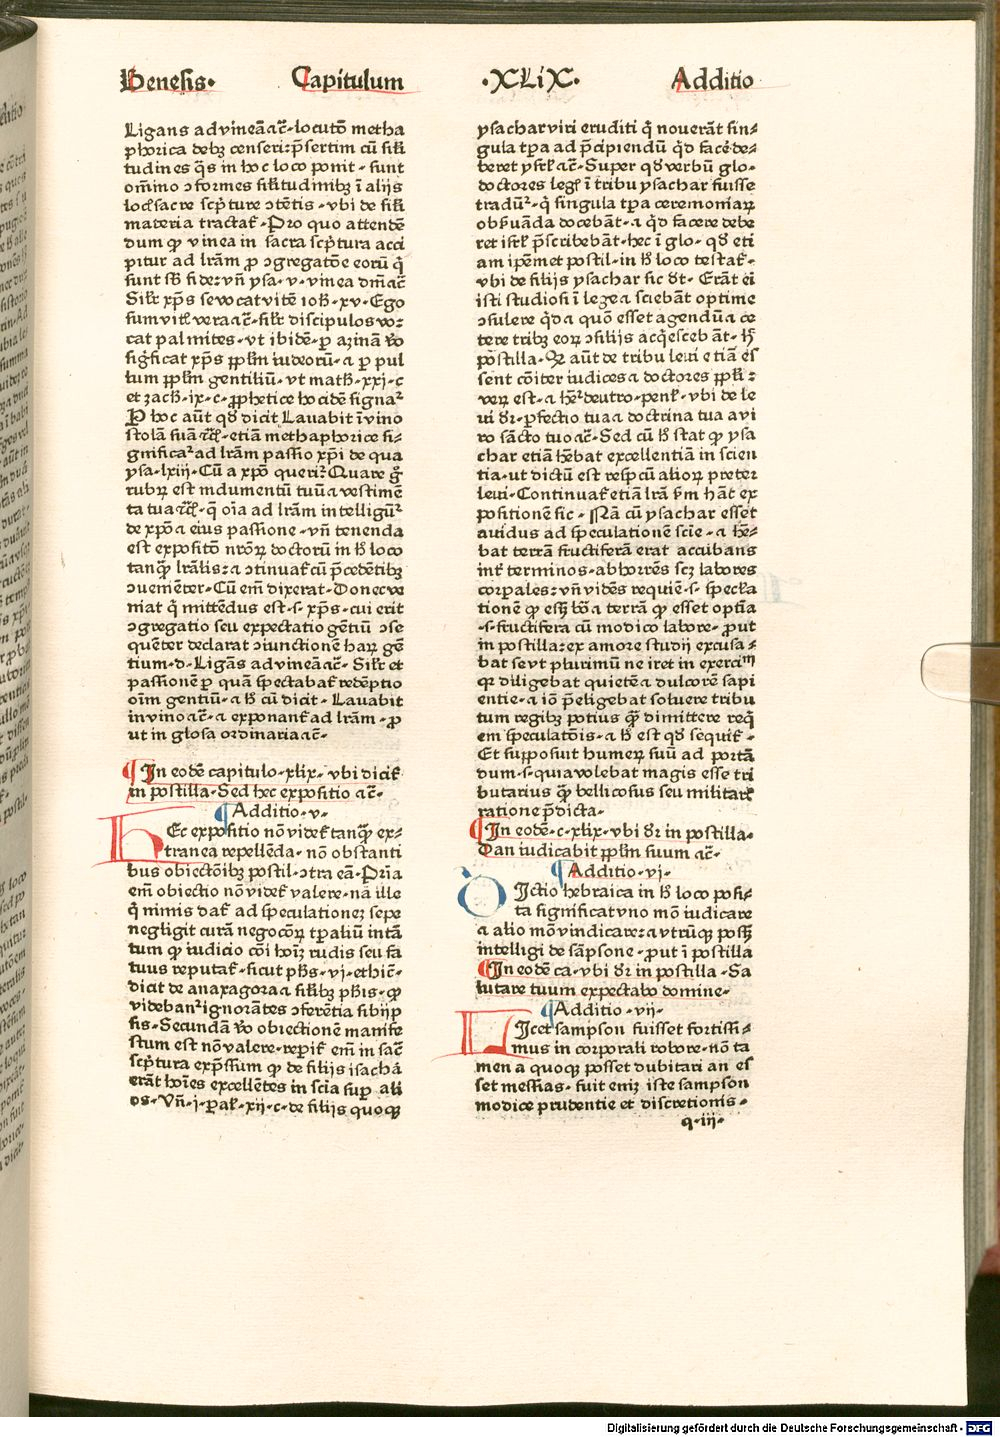 Genesis·
Capitulum
·XLiX·
Additio
Ligans ad vineā ac̄·locutō metha
phorica debꝫ censeri:p̄sertim cū sil'i
tudines q̄s in hoc loco ponit·sunt
oīmino ↄformes sil'itudinibꝫ ī alijs
loc sacre scp̄ture ↄtētis·vbi de sil'i
materia tractat᷑·Pro quo attendē
dum ꝙ vinea in sacra scp̄tura acci
pitur ad l'ram ꝓ ↄgregatōe eorū q̄
sunt sb̄ fide:vn̄ ysa·v·vinea dn̄i ac̄
Sil'r xp̄s se vocat vitē ioh̄·xv·Ego
sum vitis vera ac̄·sil'r discipulos vo:
cat palmites·vt ibidē·ꝑ azinā v̄o
sigficat xp̄s ppl'm iudeorū·a ꝑ pul
lum ppl'm gentiliū·vt math̄·xxi·c
et zach̄·ix·c·ꝓphetice hoc idē signat᷑
P hoc aūt qd̄ dicit Lauabit ī vino
stolā suā ac̄·etiā methaphorice si⸗
gnificat᷑ ad l'ram passio xp̄i de qua
ysa·lxiij·Cū a xp̄o querit᷑ Quare ḡ
rubꝝ est indumentū tuū a vestimē
ta tua ac̄·q̄ oīa ad l'ram intelligūt᷑
de xp̄o a eius passione·vn̄ tenenda
est expositō nr̄orꝫ doctorū in h̄ loco
tanq̄ l'ralis:a ↄtinuat᷑ cū p̄cedētibꝫ
ↄuemēter·Cū em̄ dixerat·Donec ve
niat q̄ mittēdus est·s·xp̄s·cui erit
ↄgregatio seu expectatio gētiū ↄse
quēter declarat ↄiunctionē harꝝ gē
tium·d·Ligās ad vineā ac̄·Sil'r et
passionē ꝑ quā spectabat᷑ redēptio
oīm gentiū·a h̄ cū dicit·Lauabit
in vino ac̄·a exponant᷑ ad l'ram·ꝓ
ut in glosa ordinaria ac̄·
¶In eodē capitulo·xlix·vbi dicit᷑
in postilla·Sed hec expositio ac̄·
¶Additio·v·
HEc expositio nō videt᷑ tanq̄ ex⸗
tranea repellēda·nō obstanti
bus obiectōibꝫ postil·ↄtra eā·Prīa
em̄ obiectio nō videt᷑ valere·nā ille
q̄ nimis dat᷑ ad speculationeꝫ sepe
negligit curā negocōꝝ tꝑaliū intā
tum ꝙ iudicio cōi hoīꝫ rudis seu fa
tuus reputat᷑·sicut ph̄s·vj·ethic̄·
dicit de anaxagora a sil'ibꝫ ph̄is·ꝙ
videbant᷑ ignorātes ↄferētia sibijp
sis·Secundā v̄o obiectionē manife
stum est nō valere·reperit᷑ em̄ in sac̄
scp̄tura exp̄ssum ꝙ de filijs isachā
erāt hoīes excellētes in scīa suꝑ ali
os·Vn̄·j·ꝑal'·xij·c·de filijs quoqꝫ
ysachar viri eruditi q̄ nouerāt sin⸗
gula tꝑa ad p̄cipiendū q̄d facē de⸗
beret ysrl' ac̄·Super qd̄ verbū glo·
doctores leg ī tribu ysachar fuisse
tradūt᷑·q̄ singula tꝑa ceremoniaꝝ
obs̄uāda docebāt·a q̄d facere debe
ret isrl' p̄scribebāt·hec ī glo·qd̄ eti
am ip̄emet postil·in h̄ loco testat᷑·
vbi de filijs ysachar sic dr̄t·Erāt ei
isti studiosi ī lege a sciebāt optime
ↄsulere q̄d a quō esset agendū a ce
tere tribꝫ eoꝝ ↄsilijs acq̄escebāt·h̄
postilla·Qz aūt de tribu leui etiā eſ
sent cōiter iudices a doctores ppl'i:
veꝝ est·a het᷑ deutro·penl'·vbi de le
ui dr̄·ꝑfectio tua a doctrina tua a vi
ro sācto tuo ac̄·Sed cū h̄ stat ꝙ ysa
char etiā h̄ebat excellentiā in scien
tia·ut dictū est resp̄cū alioꝝ preter
leui·Continuat᷑ etiā l'ra s̄m hāc ex
positionē sic·Nā cū ysachar esset
auidus ad speculationē scie·a he⸗
bat terrā fructiferā erat accubans
int᷑ terminos·abhorrēs scꝫ labores
corpales:vn̄ vidēs requiē·s·specl'a
tionē ꝙ eēꝫ bōa terrā ꝙ esset optīa
·s·fructifera cū modico labore·ꝓut
in postilla:ex amore studij excusa⸗
bat se vt plurimū ne iret in exercitū
qꝛ diligebat quietē a dulcorē sapi
entie·a iō p̄eligebat soluere tribu
tum regibꝫ potius q̄ dimittere req̄
em speculatōis·a h̄ est qd̄ sequit᷑·
Et supposuit humeꝝ suū ad portā
dum·s·quia volebat magis esse tri
butarius q̄ bellicosus seu militare
ratione p̄dicta·
¶In eodē·c·xlix·vbi dr̄ in postilla·
Dan iudicabit ppl'm suum ac̄·
¶Additio·vj·
DIctio hebraica in h̄ loco posi⸗
ta significat vno mō iudicare
a alio mō vindicare:a vtrūqꝫ poss
intelligi de sāpsone·ꝓut ī postilla
¶In eodē ca·vbi dr̄ in postilla·Sa
lutare tuum expectabo domine·
¶Additio·vij·
LIcet sampson fuisset fortissi⸗
mus in corporali robore·nō ta
men a quoqꝫ posset dubitari an eſ
set messias·fuit enīꝫ iste sampson
modice prudentie et discretionis·
q·iij·
Digitalisierung gefördert durch die Deutsche Forschungsgemeinschaft · DFG